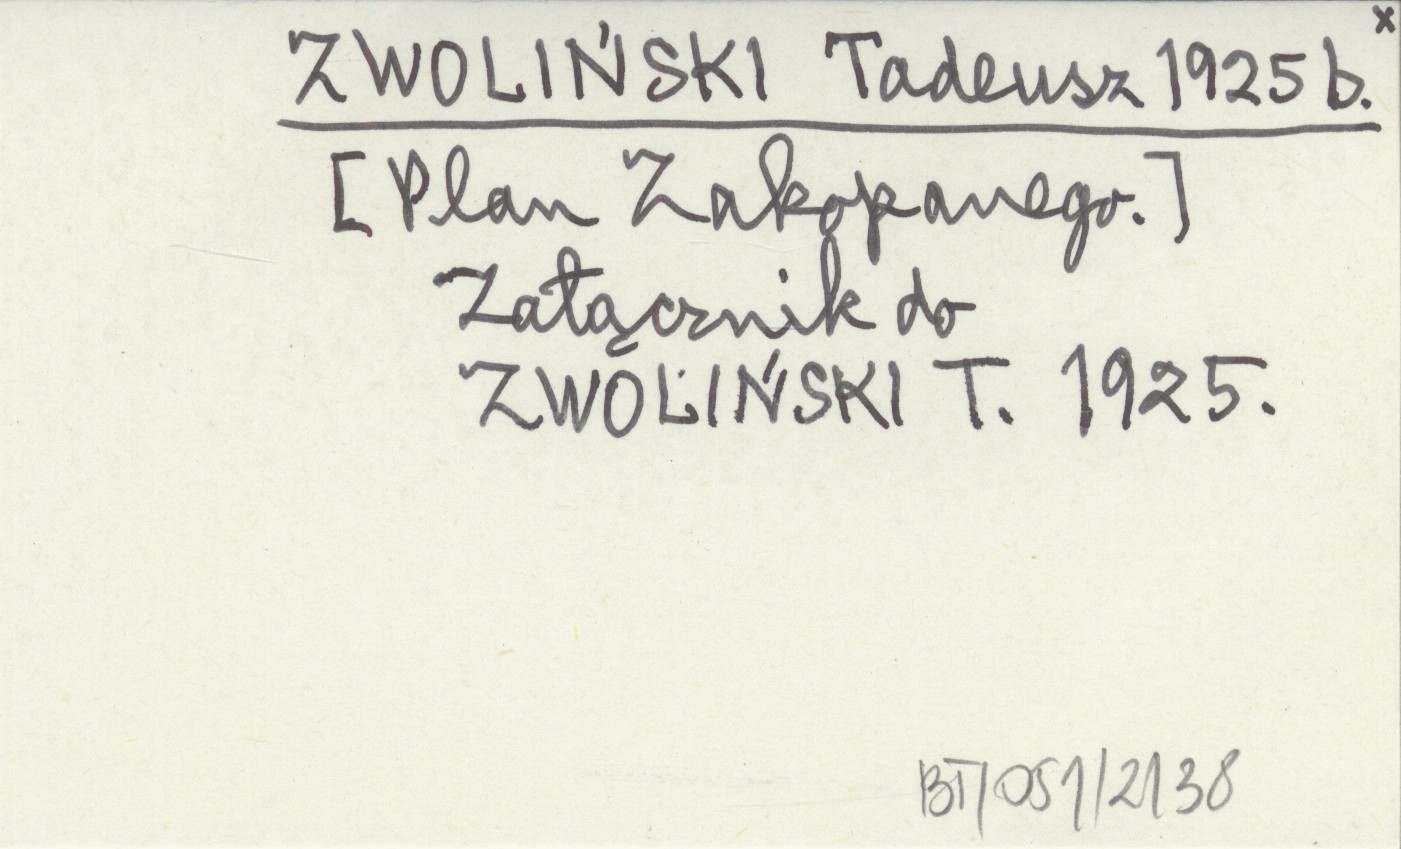 x
ZWOLIŃSKI Tadeusz 1925 b.
[Plan Zakopanego.]
Załącznik do
ZWOLIŃSKI T. 1925.
BT/051/2138